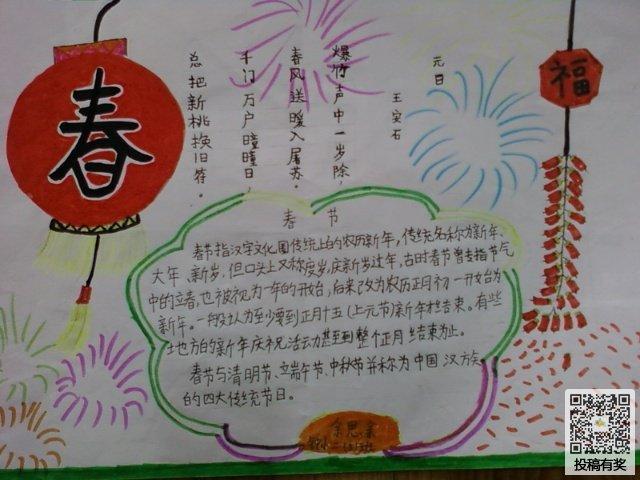 春
福
元日
王安石
爆竹声中一岁除，
春风送暖入屠苏。
千门万户曈曈日，
总把新桃换旧符。
春节
春节指汉字文化圈传统上的农历新年，传统名称为新年、
大年、新岁，但口头上又称度岁、庆新岁、过年，古时春节曾专指节气
中的立春，也被视为一年的开始，后来改为农历正月初一开始为
新年。一般认为至少要到正月十五（上元节）新年才结束。有些
地方的新年庆祝活动甚至到整个正月结束为止。
春节与清明节、端午节、中秋节并称为中国汉族
的四大传统节日。
投稿有奖